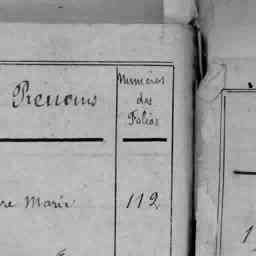 Prénoms
Numéros
des
Folios
re Marie 112
1